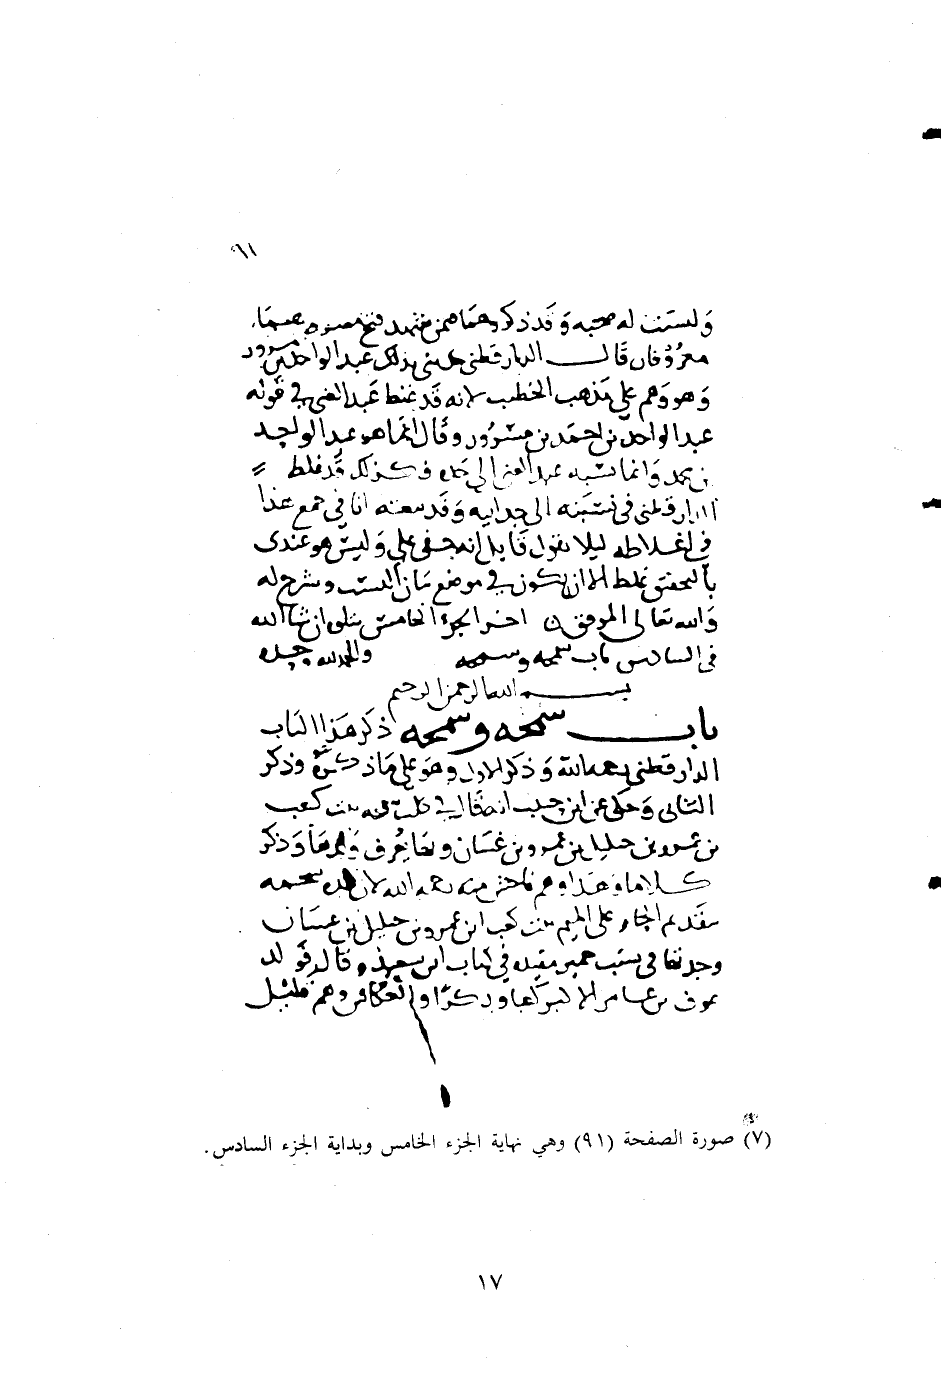 ٩١
وليست له صحبة وقد ذكرهما فيمن شهد فتح مصر وهما
معروفان قال الدارقطني حدثني بذلك عبد الواحد بن مسرور
وهو وهم على مذهب الخطيب لانه قد غلط عبد الغني في قوله
عبد الواحد بن احمد بن مسرور وقال انما هو عبد الواحد
بن محمد وانما نسبه عبد الغني الى جده فكذلك قد غلط
الدارقطني في نسبته الى جد ابيه وقد سمعته انا في جمع هذا
في اغلاطه ليلا يقول قايل انه خفي علي وليس هو عندي
بالتحقيق غلط الا ان يكون في موضع بيان النسب وشرح له
والله تعالى الموفق اخر الجزء الخامس يتلوه ان شا الله
في السادس باب سمحه وسمحه والحمد لله وحده
بسم الله الرحمن الرحيم
باب سمحه وسمحه ذكر هذا الباب
الدارقطني رحمه الله وذكر الاول وهو على ما ذكره وذكر
الثاني وحكى عن ابن حبيب انه قال في بنت كعب
بن عمرو بن خليل بن عمرو بن غسان وبها يعرف ولدها وذكر
كلاما وهذا وهم فاحش منه رحمه الله لان هذه سحمه
بتقديم الحاء على الميم بنت كعب ابن عمرو بن خليل بن غسان
وجدتها في نسب حمير مقيده في كتاب ابن سعيد وقال فولد
عوف بن عامر الاكبر وذكر
(٧) صورة الصفحة (٩١) وهي نهاية الجزء الخامس وبداية الجزء السادس.
١٧